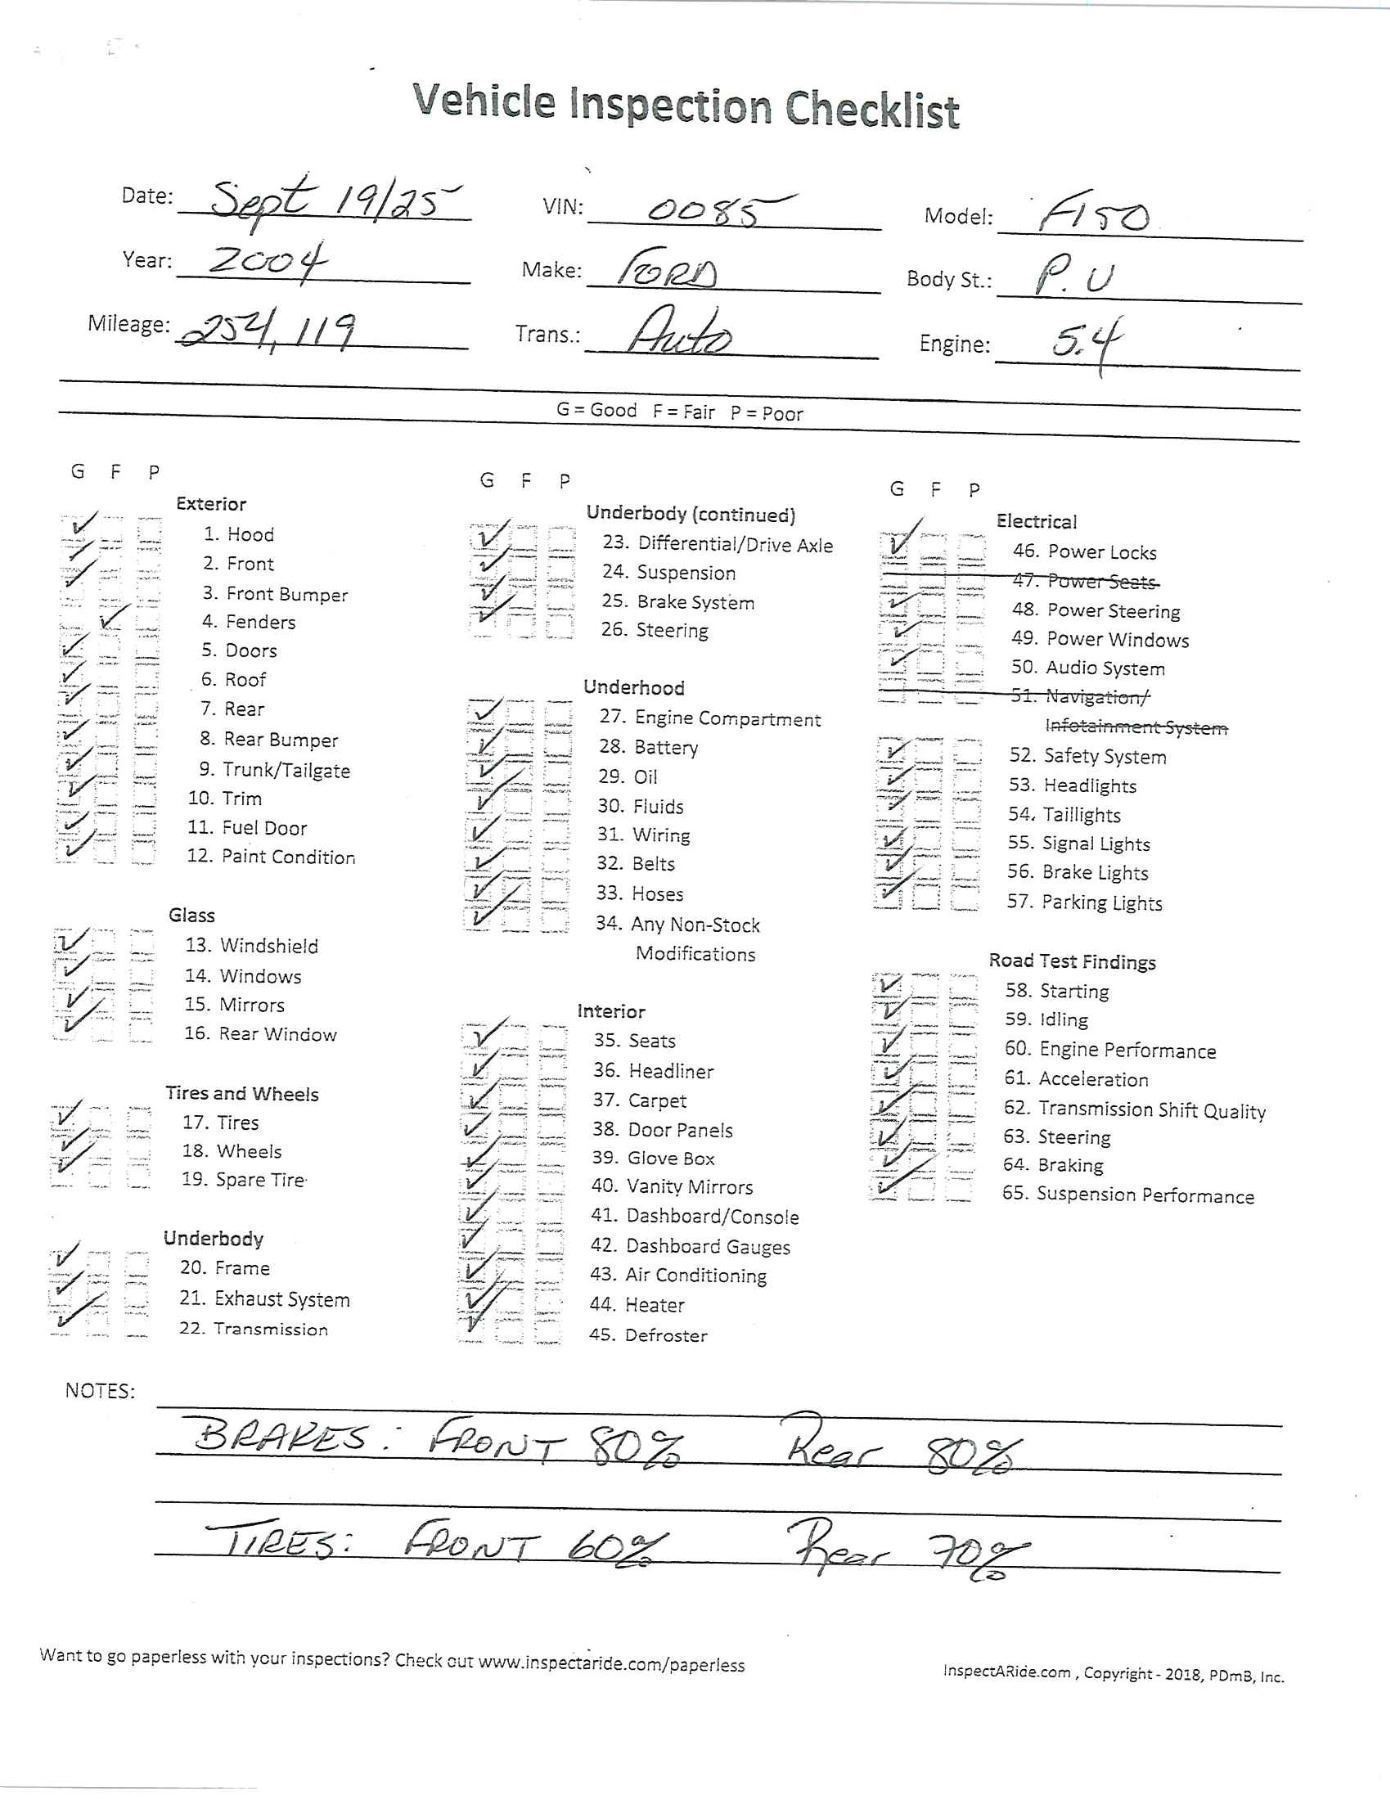 Vehicle Inspection Checklist
Date: Sept 19/25 VIN: 0085 Model: F150
Year: 2004 Make: FORD Body St.: P.U
Mileage: 254,119 Trans.: Auto Engine: 5.4
G = Good F = Fair P = Poor
G F P
Exterior
✓ 1. Hood
✓ 2. Front
✓ 3. Front Bumper
✓ 4. Fenders
✓ 5. Doors
✓ 6. Roof
✓ 7. Rear
✓ 8. Rear Bumper
✓ 9. Trunk/Tailgate
✓ 10. Trim
✓ 11. Fuel Door
✓ 12. Paint Condition
Glass
✓ 13. Windshield
✓ 14. Windows
✓ 15. Mirrors
✓ 16. Rear Window
Tires and Wheels
✓ 17. Tires
✓ 18. Wheels
✓ 19. Spare Tire
Underbody
✓ 20. Frame
✓ 21. Exhaust System
✓ 22. Transmission
G F P
Underbody (continued)
✓ 23. Differential/Drive Axle
✓ 24. Suspension
✓ 25. Brake System
✓ 26. Steering
Underhood
✓ 27. Engine Compartment
✓ 28. Battery
✓ 29. Oil
✓ 30. Fluids
✓ 31. Wiring
✓ 32. Belts
✓ 33. Hoses
✓ 34. Any Non-Stock
Modifications
Interior
✓ 35. Seats
✓ 36. Headliner
✓ 37. Carpet
✓ 38. Door Panels
✓ 39. Glove Box
✓ 40. Vanity Mirrors
✓ 41. Dashboard/Console
✓ 42. Dashboard Gauges
✓ 43. Air Conditioning
✓ 44. Heater
✓ 45. Defroster
G F P
Electrical
✓ 46. Power Locks
47. Power Seats
✓ 48. Power Steering
✓ 49. Power Windows
✓ 50. Audio System
51. Navigation/
Infotainment System
✓ 52. Safety System
✓ 53. Headlights
✓ 54. Taillights
✓ 55. Signal Lights
✓ 56. Brake Lights
✓ 57. Parking Lights
Road Test Findings
✓ 58. Starting
✓ 59. Idling
✓ 60. Engine Performance
✓ 61. Acceleration
✓ 62. Transmission Shift Quality
✓ 63. Steering
✓ 64. Braking
✓ 65. Suspension Performance
NOTES:
BRAKES: FRONT 80% Rear 80%
TIRES: FRONT 60% Rear 70%
Want to go paperless with your inspections? Check out www.inspectaride.com/paperless
InspectARide.com , Copyright - 2018, PDmB, Inc.